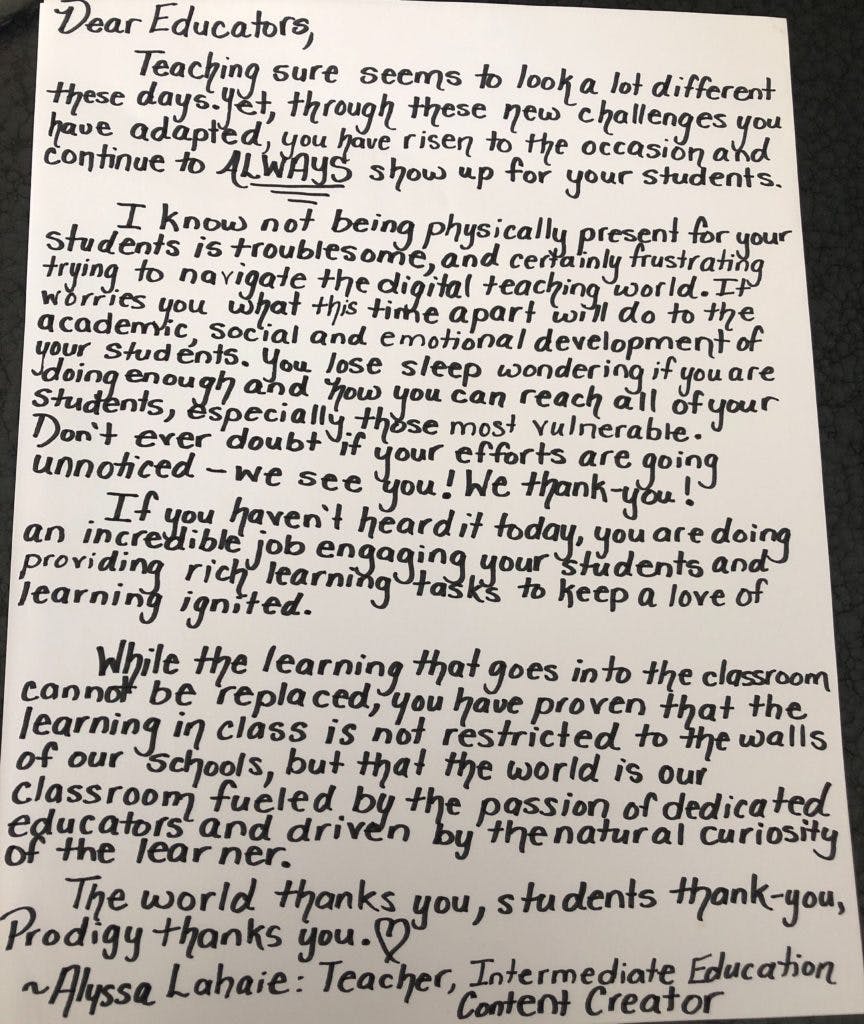 Dear Educators,
Teaching sure seems to look a lot different
these days. Yet, through these new challenges you
have adapted, you have risen to the occasion and
continue to ALWAYS show up for your students.
I know not being physically present for your
students is troublesome, and certainly frustrating
trying to navigate the digital teaching world. It
worries you what this time apart will do to the
academic, social and emotional development of
your students. You lose sleep wondering if you are
doing enough and how you can reach all of your
students, especially those most vulnerable.
Don't ever doubt if your efforts are going
unnoticed - we see you! We thank-you!
If you haven't heard it today, you are doing
an incredible job engaging your students and
providing rich learning tasks to keep a love of
learning ignited.
While the learning that goes into the classroom
cannot be replaced, you have proven that the
learning in class is not restricted to the walls
of our schools, but that the world is our
classroom fueled by the passion of dedicated
educators and driven by the natural curiosity
of the learner.
The world thanks you, students thank-you,
Prodigy thanks you.♡
~Alyssa Lahaie: Teacher, Intermediate Education
Content Creator